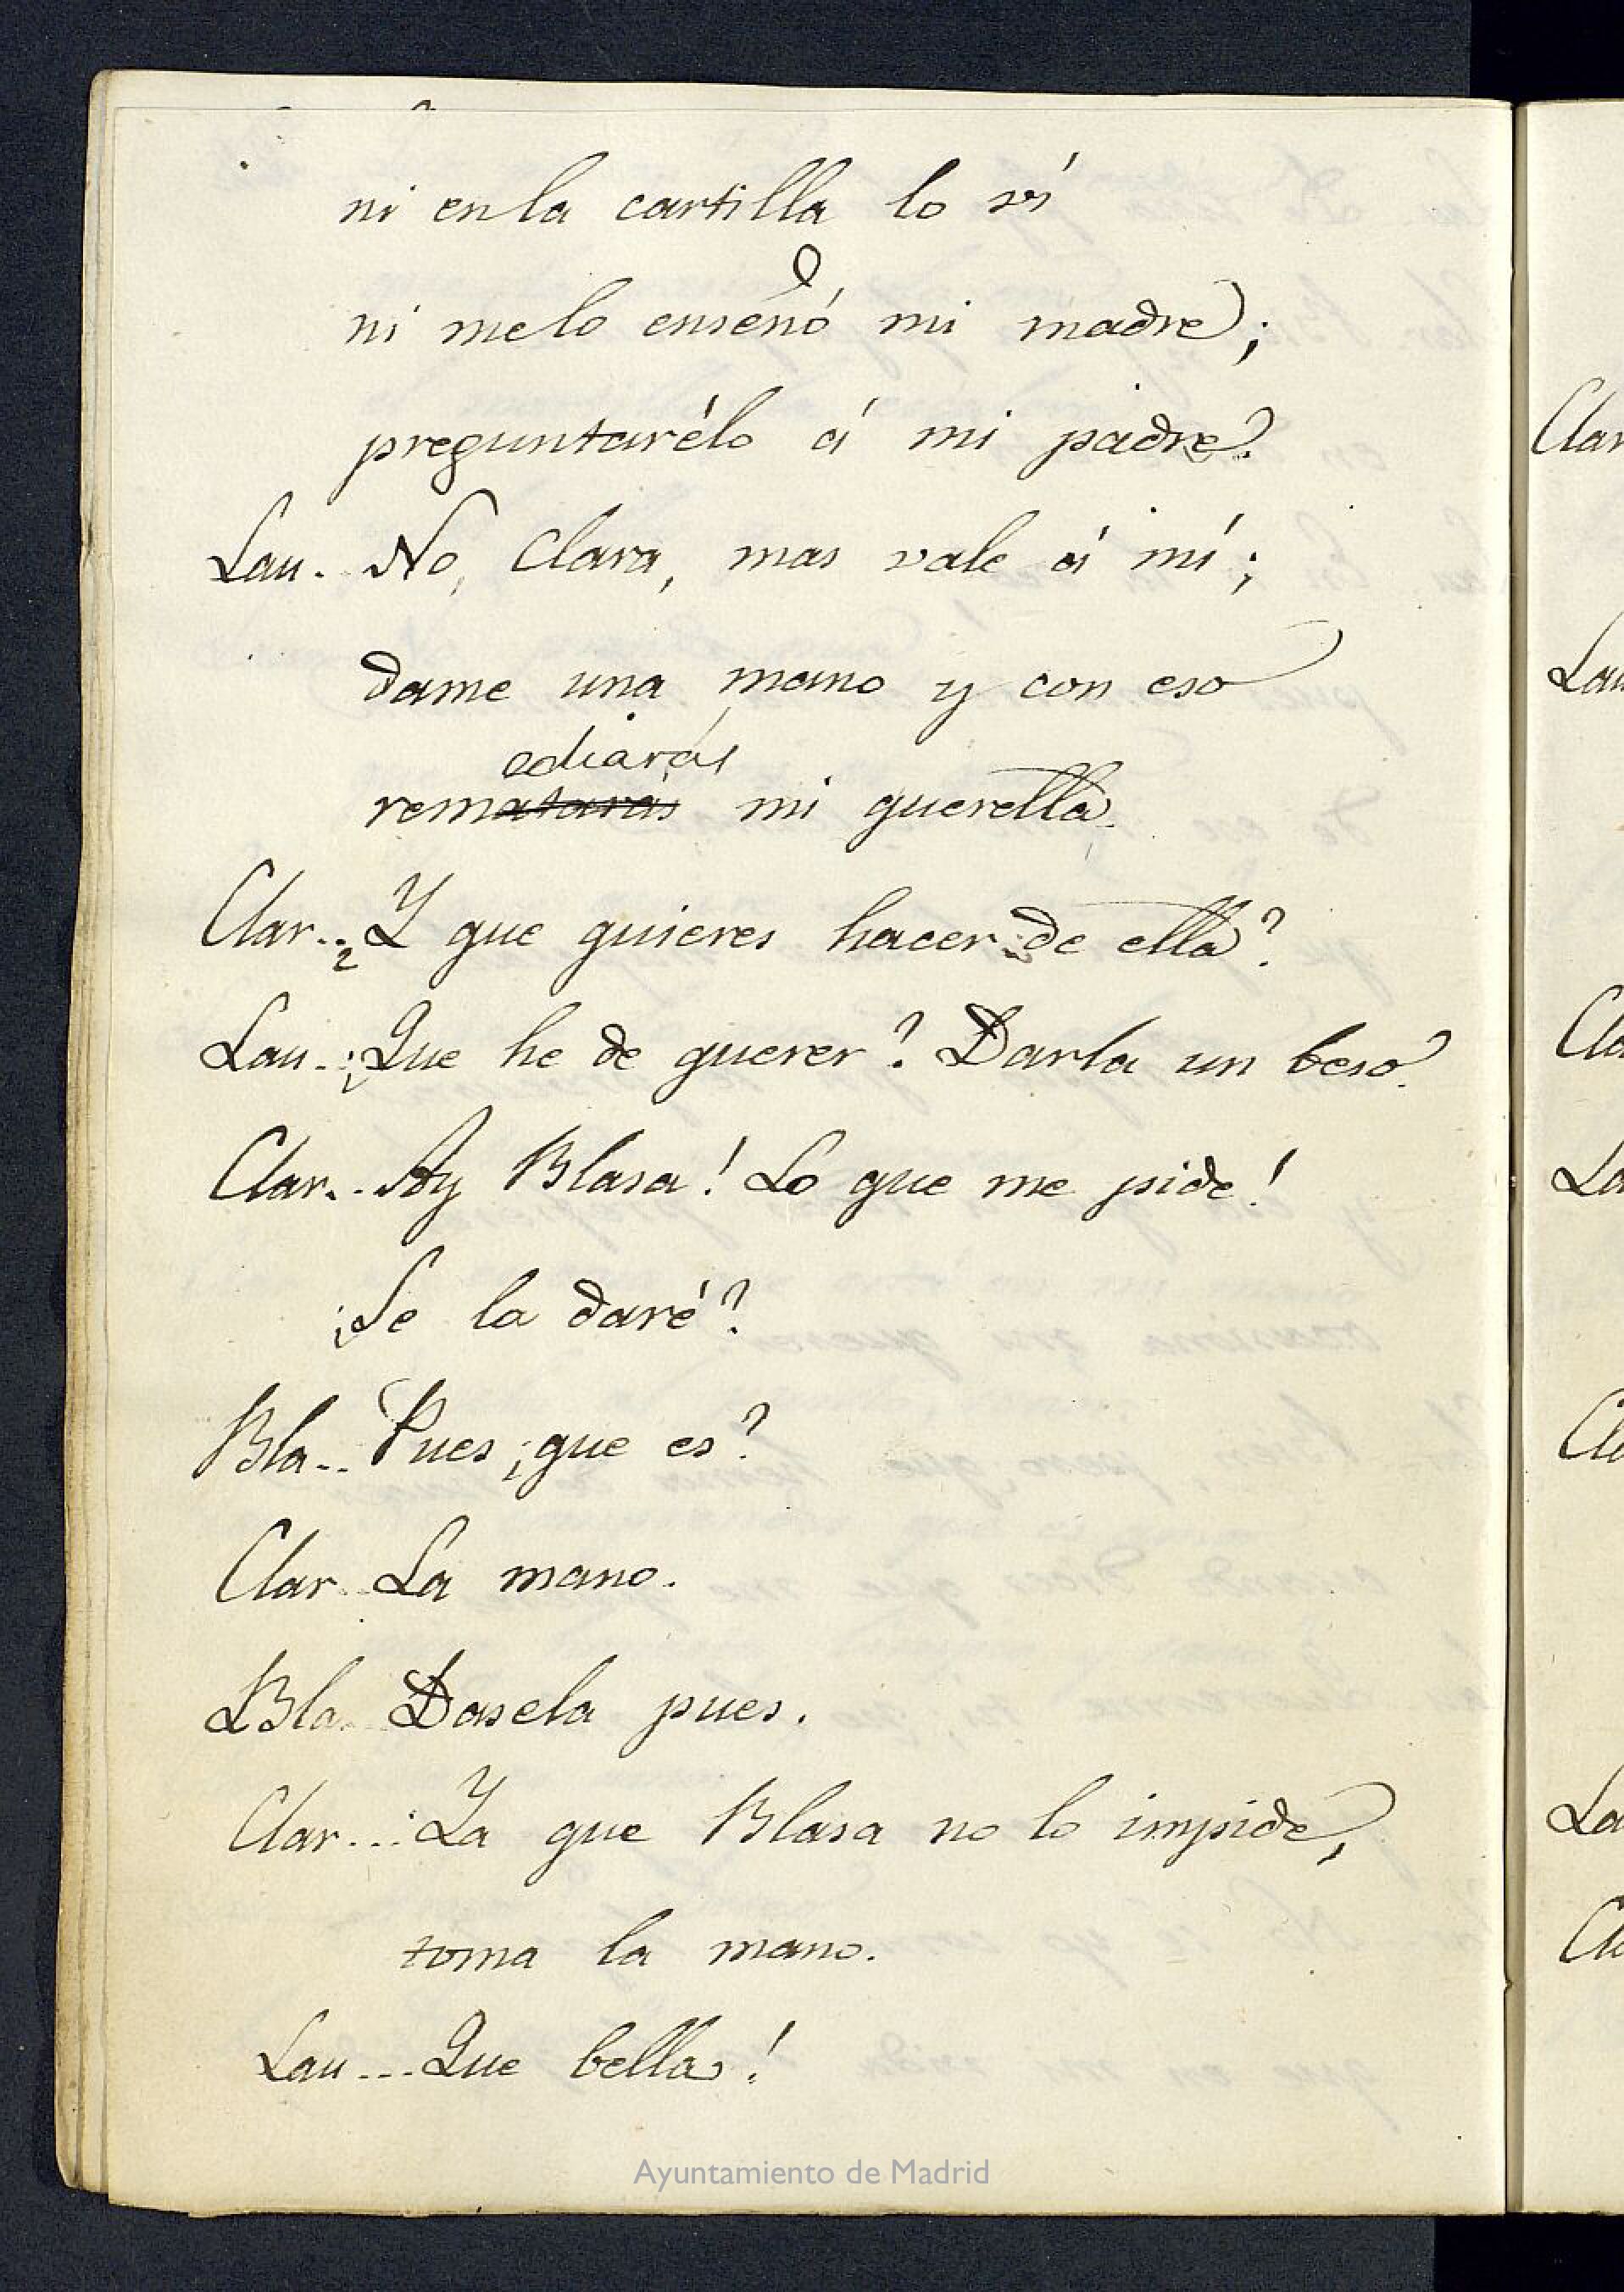 ni en la cartilla lo ví
ni melo enseñó mi madre;
preguntarélo á mi padre?
Lau. No, Clara, mas vale á mí;
dame una mano y con eso
ediarás
rematarás mi querella.
Clar.. ¿Y que quieres hacer de ella?
Lau.. ¿Que he de querer? Darla un beso.
Clar.. Ay Blasa! Lo que me pide!
¿Se la daré?
Bla.. Pues ¿que es?
Clar.. La mano.
Bla.. Dasela pues.
Clar... Ya que Blasa no lo impide,
toma la mano.
Lau... Que bella!
Ayuntamiento de Madrid
Clar
Lau
Cla
La
Cla
La
Cla